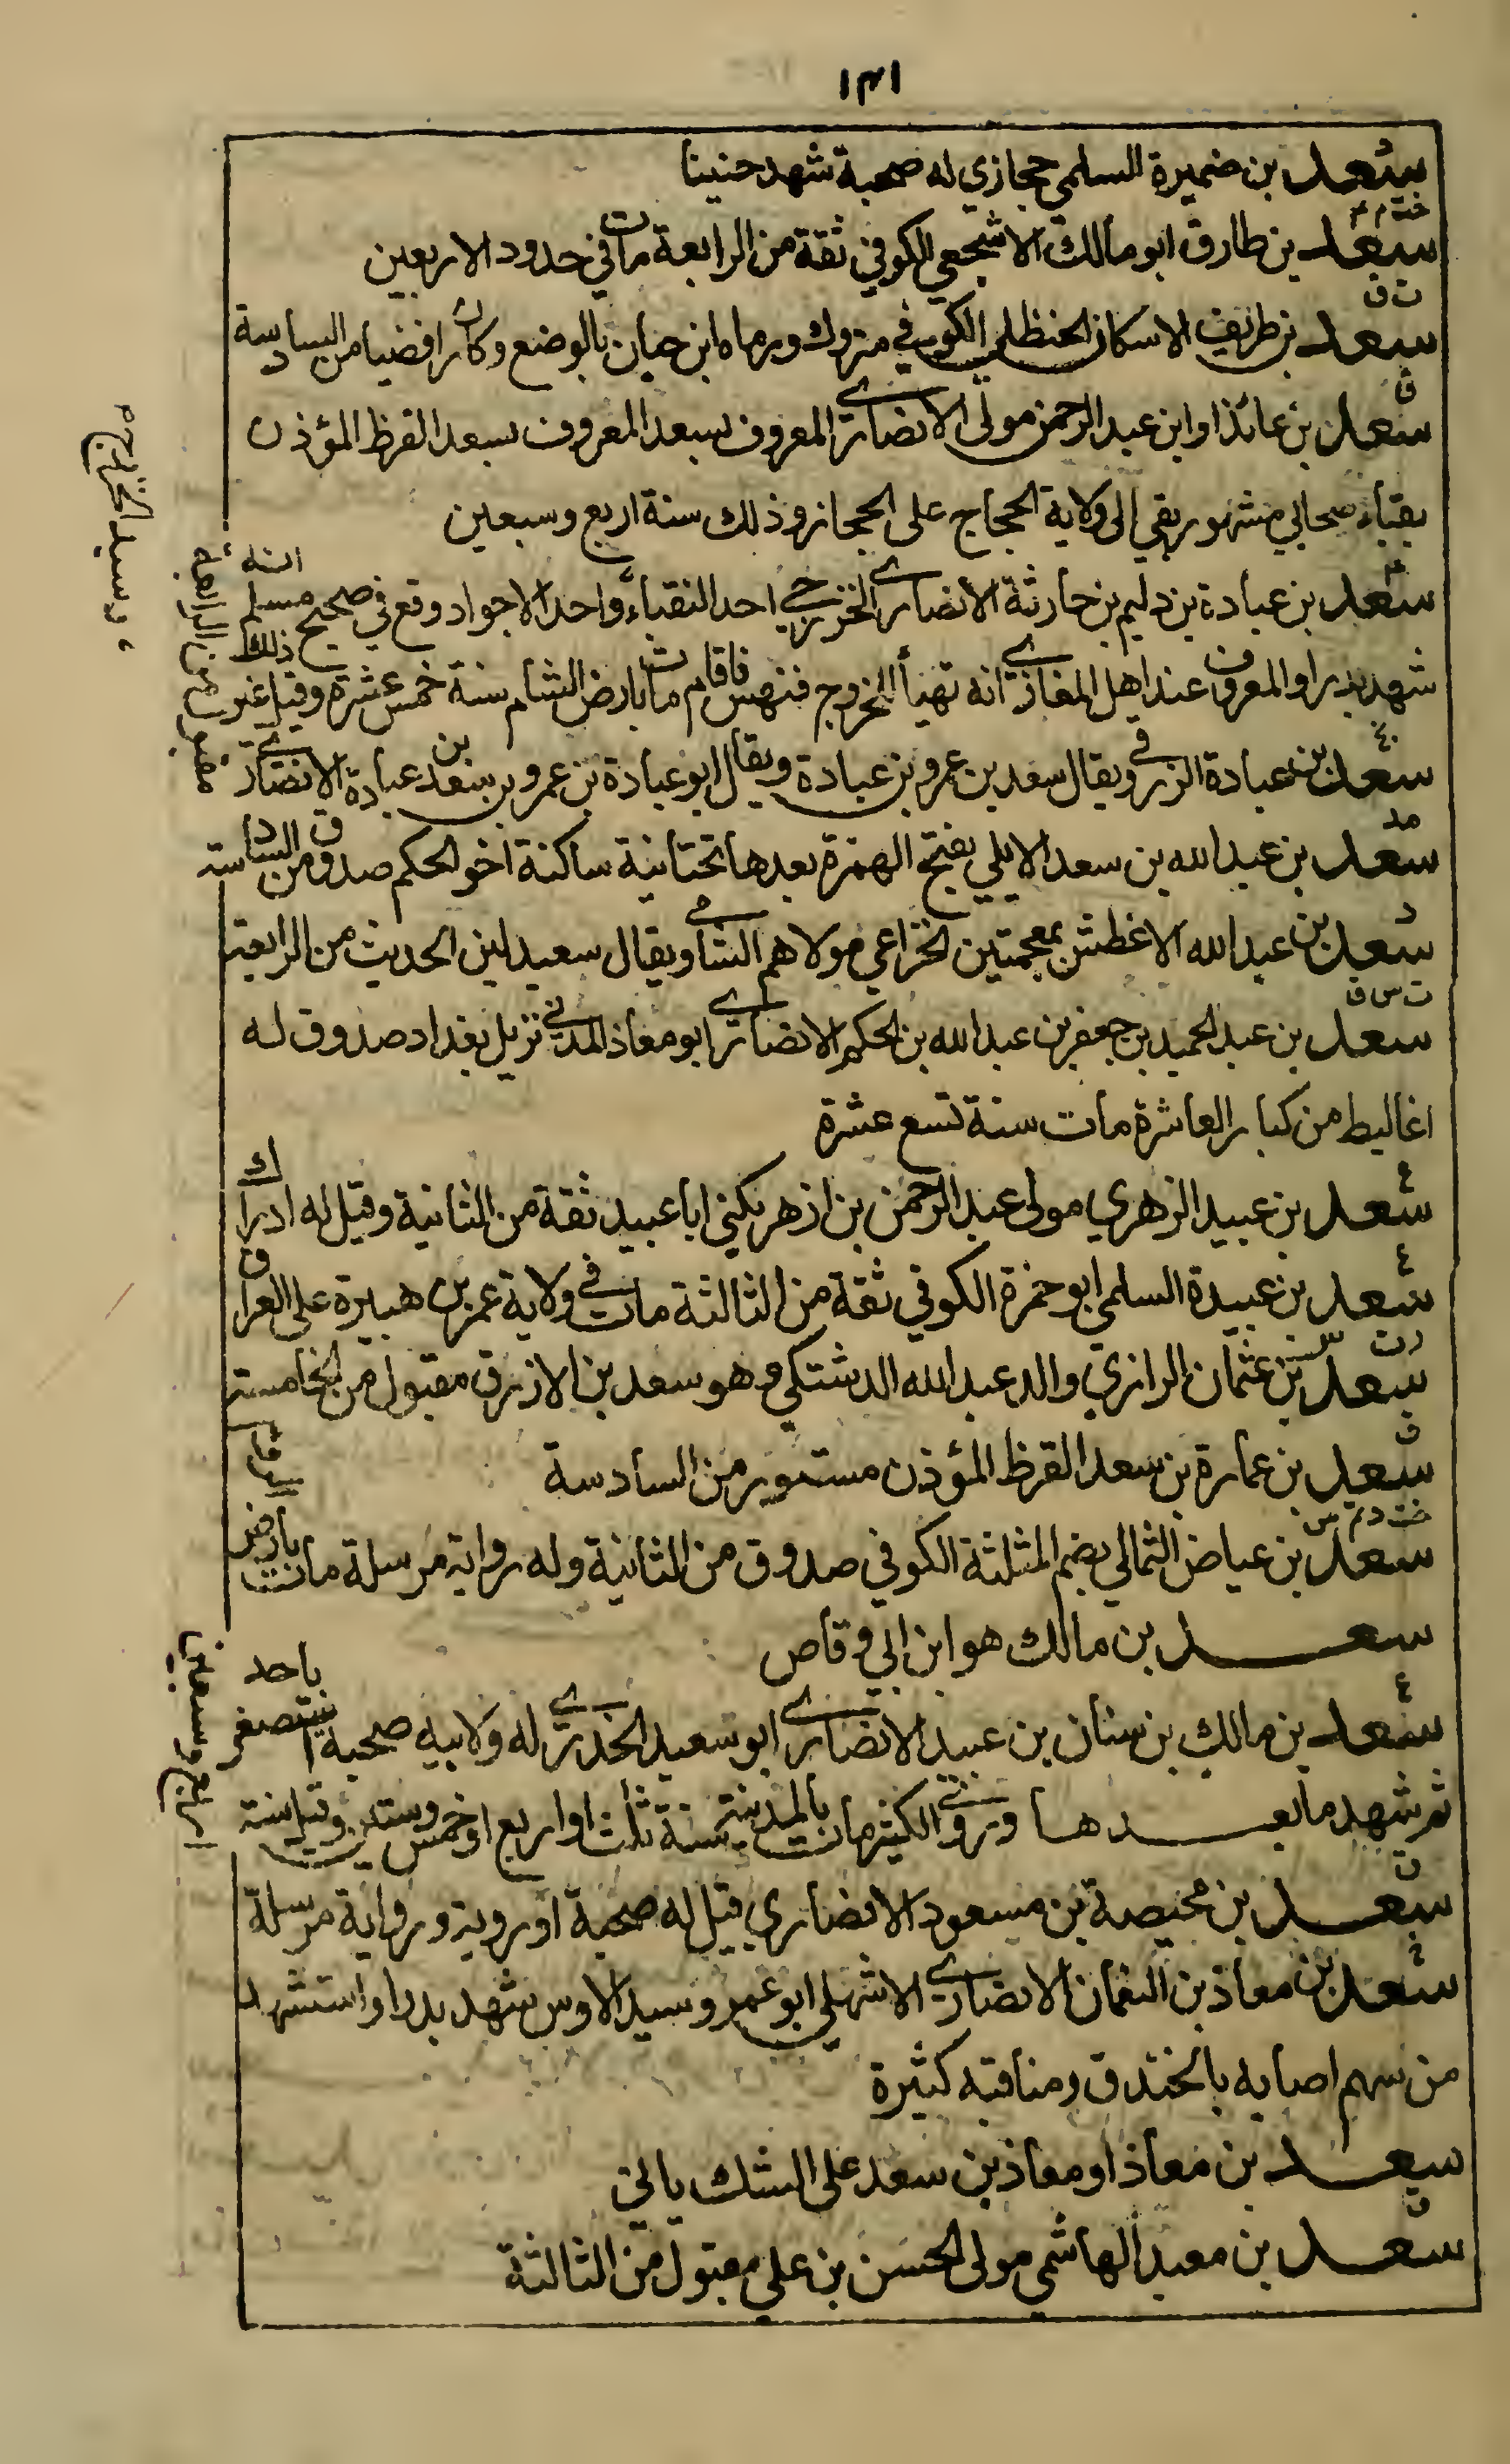 ١٣١
د
سعد بن ضميرة السلمي حجازي له صحبة شهد حنينا
خت م ٤
سعد بن طارق ابو مالك الاشجعي الكوفي ثقة من الرابعة مات في حدود الاربعين
ت ق
سعد بن طريف الاسكاف الحنظلي الكوفي متروك ورماه ابن حبان بالوضع وكان رافضيا من السادسة
ق
سعد بن عائذ او ابن عبد الرحمن مولى الانصاري المعروف بسعد المعروف بسعد القرظ المؤذن
بقباء صحابي مشهور بقي الى ولاية الحجاج على الحجاز وذلك سنة اربع وسبعين
٤
سعد بن عبادة بن دليم بن حارثة الانصاري الخزرجي احد النقباء واحد الاجواد وقع في صحيح مسلم انه
وسيد الخزرج
شهد بدرا والمعروف عند اهل المغازي انه تهيأ للخروج فنهس فاقام مات بارض الشام سنة خمس عشرة وقيل غير ذلك
سعد بن عبادة الزرقي ويقال سعد بن عمرو بن عبادة ويقال ابو عبادة بن عمرو بن سعد بن عبادة الانصاري
من الرابعة
مد
سعد بن عبد الله بن سعد الايلي بفتح الهمزة بعدها تحتانية ساكنة اخو الحكم صدوق من السادسة
د
سعد بن عبد الله الاغطش بمعجمتين الخزاعي مولاهم الشامي ويقال سعيد لين الحديث من الرابعة
ت س ق
سعد بن عبد الحميد بن جعفر بن عبد الله بن الحكم الانصاري ابو معاذ المدني نزيل بغداد صدوق له
اغاليط من كبار العاشرة مات سنة تسع عشرة
ع
سعد بن عبيد الزهري مولى عبد الرحمن بن ازهر يكنى ابا عبيد ثقة من الثانية وقيل له ادراك
ع
سعد بن عبيدة السلمي ابو حمزة الكوفي ثقة من الثالثة مات في ولاية عمر بن هبيرة على العراق
د ت س
سعد بن عثمان الرازي والد عبد الله الدشتكي هو سعد بن الازرق مقبول من الخامسة
ق
سعد بن عمارة بن سعد القرظ المؤذن مستور من السادسة
خت د تم س
سعد بن عياض الثمالي بضم المثلثة الكوفي صدوق من الثانية وله رواية مرسلة مات بارض
سعد بن مالك هو ابن ابي وقاص
ع
سعد بن مالك بن سنان بن عبيد الانصاري ابو سعيد الخدري له ولابيه صحبة استصغر باحد
ثم شهد ما بعدها وروى الكثير مات بالمدينة سنة ثلث او اربع او خمس وستين وقيل سنة
اربع وسبعين
ق
سعد بن محيصة بن مسعود الانصاري قيل له صحبة او روية ورواية مرسلة
خ
سعد بن معاذ بن النعمان الانصاري الاشهلي ابو عمرو سيد الاوس شهد بدرا واستشهد
من سهم اصابه بالخندق ومناقبه كثيرة
سعد بن معاذ او معاذ بن سعد على الشك ياتي
ق
سعد بن معبد الهاشمي مولى الحسن بن علي مقبول من الثالثة